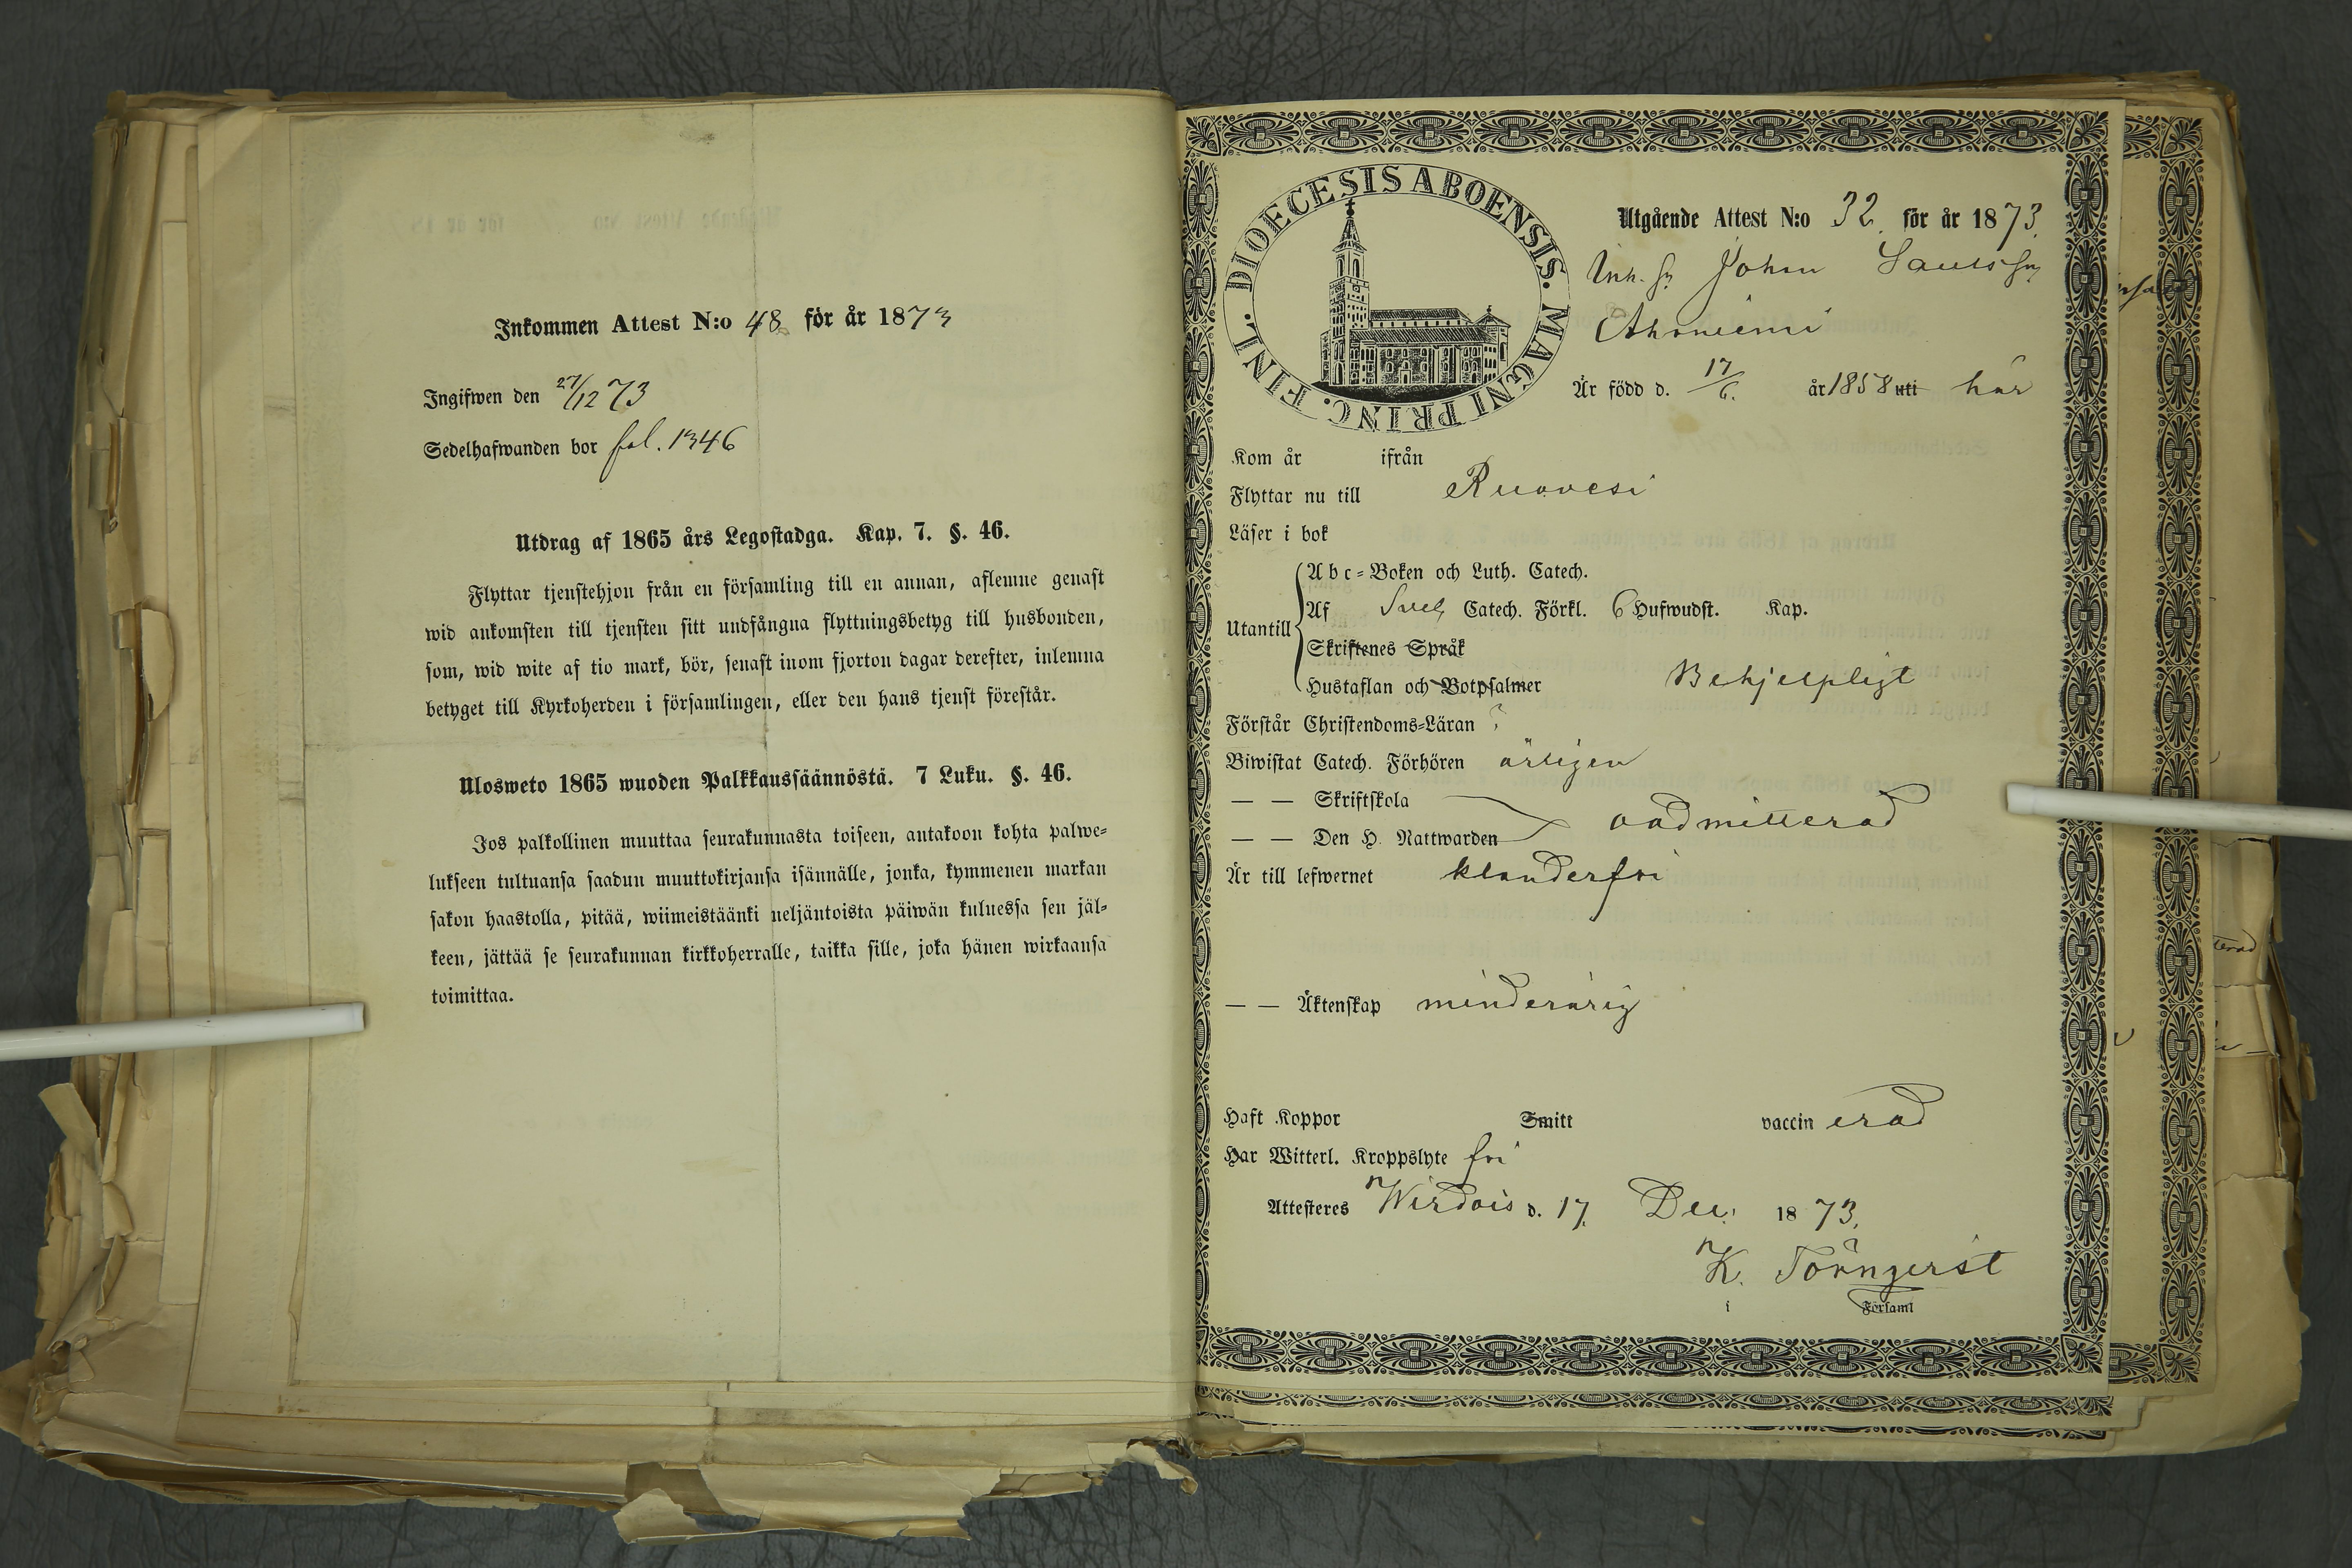 Inkommen Attest N:o 48 för år 1873
Ingifwen den 27/12 73
Sedelhafwanden bor fol. 1346
Utdrag af 1865 års Legostadga. Kap. 7. §. 46.
Flyttar tjenstehjon från en församling till en annan, aflemne genast
wid ankomsten till tjensten sitt undfångna flyttningsbetyg till husbonden,
som, wid wite af tio mark, bör, senast inom fjorton dagar derefter, inlemna
betyget till Kyrkoherden i församlingen, eller den hans tjenst förestår.
Ulosweto 1865 wuoden Palkkaussäännöstä. 7 Luku. §. 46.
Jos palkollinen muuttaa seurakunnasta toiseen, antakoon kohta palwe-
lukseen tultuansa saadun muuttokirjansa isännälle, jonka, kymmenen markan
sakon haastolla, pitää, wiimeistäänki neljäntoista päiwän kuluessa sen jäl-
keen, jättää se seurakunnan kirkkoherralle, taikka sille, joka hänen wirkaansa
toimittaa.
DIOECESIS ABOENSIS. MAGNI PRINC. FINL.
Utgående Attest N:o 32. för år 1873.
Inh. Johan
Är född d. 17/6. år 1858 uti här
Kom år ifrån
Flyttar nu till Ruovesi
Läser i bok
Utantill
Abc-Boken och Luth. Catech.
Af Sveb. Catech. Förkl. 6 Hufwudst. Kap.
Skriftenes Språk
Hustaflan och Botpsalmer Behjelpligt
Förstår Christendoms-Läran ?
Biwistat Catech. Förhören årligen
— — Skriftskola
— — Den H. Nattwarden oadmitterad
Är till lefwernet klanderfri
— — Äktenskap minderårig
Haft Koppor Smitt vaccinerad
Har Witterl. Kroppslyte fri
Attesteres Wirdois d. 17. Dec. 1873.
K. Törnqvist
i Församl